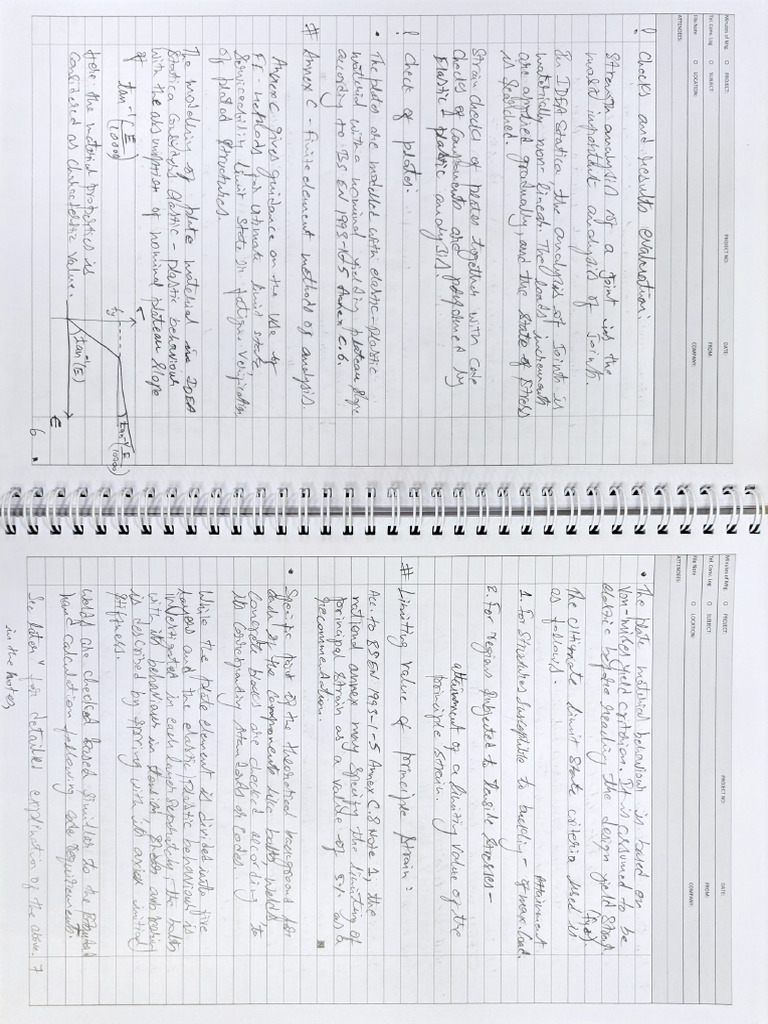 Minutes of Mtg
PROJECT:
PROJECT NO:
DATE:
Tel. Conv. Log
SUBJECT:
FROM:
File Note
LOCATION:
COMPANY:
ATTENDEES:
! Checks and results evaluation:
Strength analysis of a joint is the
most important analysis of joints.
In IDEA Statica the analysis of Joints is
materially non-linear. The loads increments
are applied gradually, and the state of stress
is searched.
Strain checks of plates together with code
checks of components are performed by
Elastic & plastic analysis.
! Check of plates:
• The plates are modelled with elastic-plastic
material with a nominal yielding plateau slope
according to BS EN 1993-1-5 Annex C.6.
# Annex C - finite element methods of analysis.
Annex C gives guidance on the use of
FE-methods for ultimate limit state,
Serviceability limit state or fatigue verification
of plated structures.
The modeling of plate material in IDEA
Statica considers elastic-plastic behaviour
with the assumption of nominal plateau slope
of tan⁻¹(E/1000)
Here the material properties is
considered as characteristic value.
fy
tan⁻¹(E)
tan⁻¹(E/1000)
ϵ
6
Minutes of Mtg
PROJECT:
PROJECT NO:
DATE:
Tel. Conv. Log
SUBJECT:
FROM:
File Note
LOCATION:
COMPANY:
ATTENDEES:
• The plate material behaviour is based on
Von-mises yield criterion. It is assumed to be
elastic before reaching the design yield stress
(fyd).
The ultimate limit state criteria used is
as follows.
1. For structures susceptible to buckling - Attainment
of max. load.
2. For regions subjected to tensile stresses -
attainment of a limiting value of the
principle strain.
# Limiting value of principle strain:
Acc. to BS EN 1993-1-5 Annex C.8 Note 1, the
national annex may specify the limiting of
principal strain as a value of 5% is a
recommendation.
• Specific part of the theoretical background for
each of the components like bolts, welds,
concrete blocks are checked according to
its corresponding standards or codes.
While the plate element is divided into five
layers and the elastic plastic behaviour is
investigated in each layer separately, the bolts
with its behaviour in tension, shear and bearing
is described by springs with its axial initial
stiffness.
Welds are checked based similar to the
hand calculation following code requirements.
See later for detailed explination of the above.
in the notes,
7